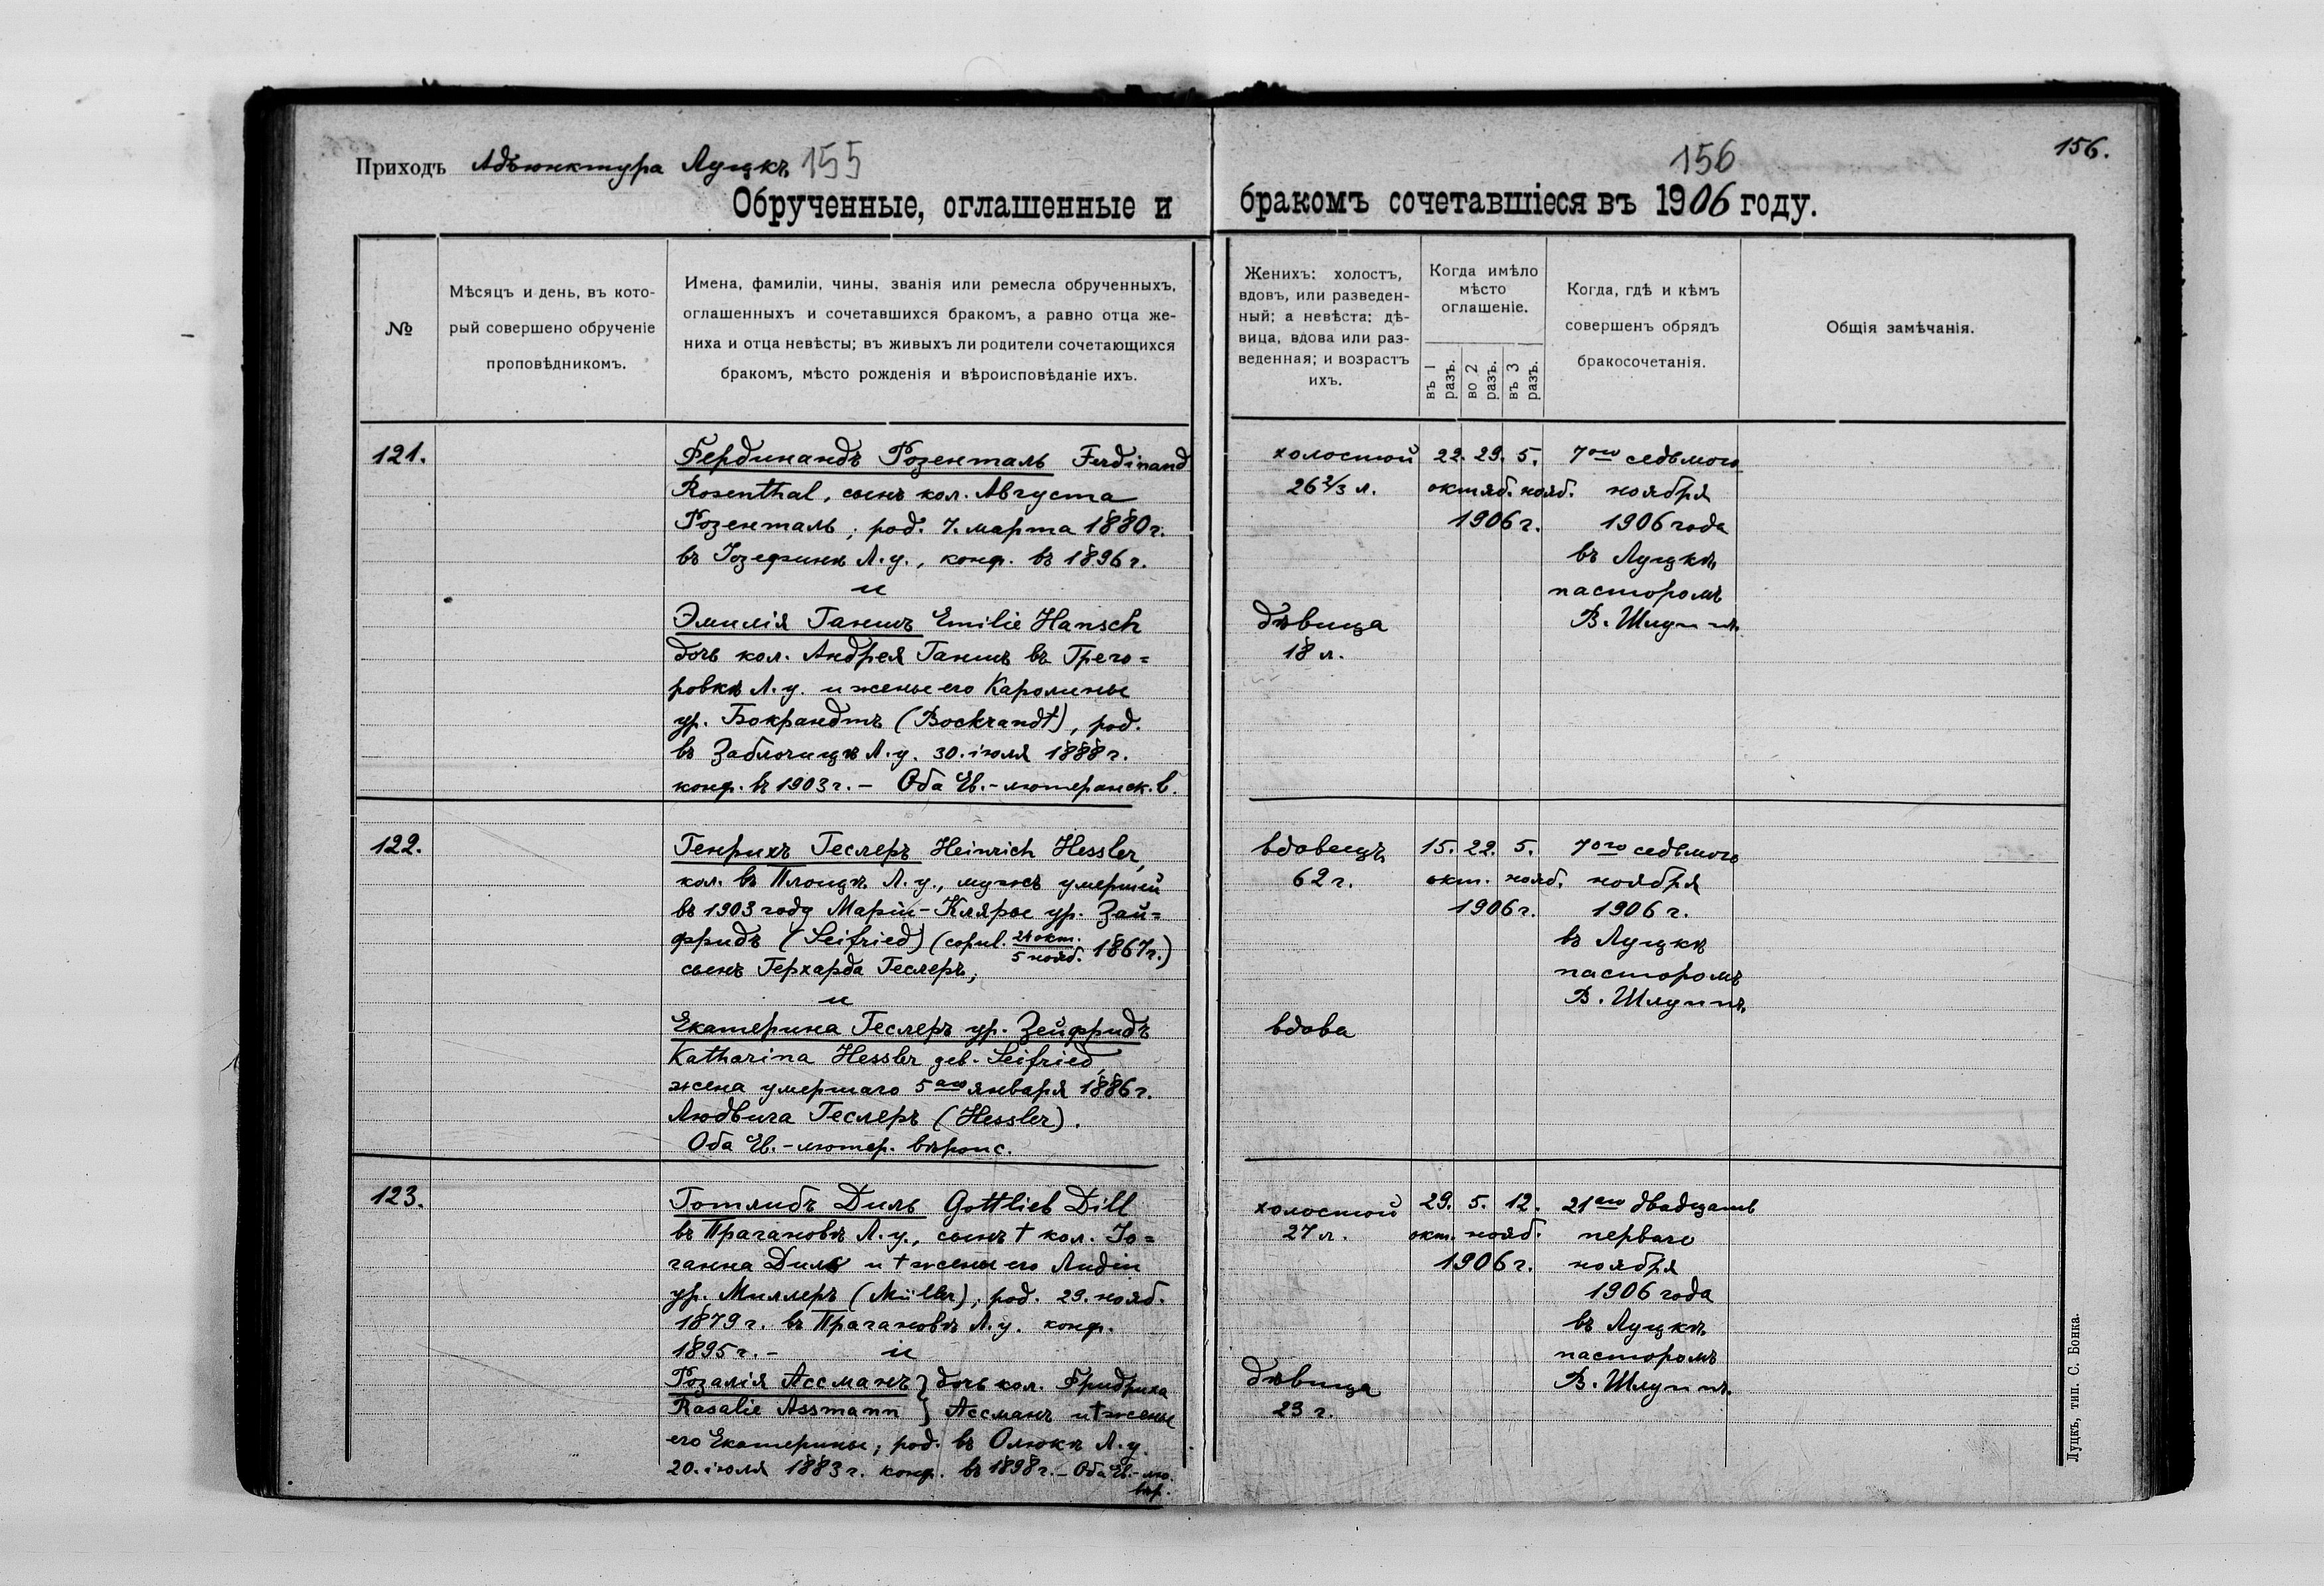 Приходъ Адъюнктура Луцкъ 155
Обрученные, оглашенные и
№
Мѣсяцъ и день, въ кото-
рый совершено обрученіе
проповѣдникомъ.
Имена, фамиліи, чины, званія или ремесла обрученныхъ,
оглашенныхъ и сочетавшихся бракомъ, а равно отца же-
ниха и отца невѣсты; въ живыхъ ли родители сочетающихся
бракомъ, мѣсто рожденія и вѣроисповѣданіе ихъ.
121.
Фердинандъ Розенталь Ferdinand
Rosenthal, сынъ кол. Августа
Розенталь, род. 7. марта 1880 г.
въ Іозефинѣ Л. у., конф. въ 1896 г.
и
Эмилія Ганшъ Emilie Hansch
дочь кол. Андрея Ганшъ въ Грего=
ровкѣ Л. у. и жены его Каролины
ур. Бокрандтъ (Bockrandt), род.
въ Заблочицѣ Л. у. 30. іюля 1888 г.
конф. въ 1903 г. – Оба Ев.-лютеранск. в.
122.
Генрихъ Геслеръ Heinrich Hessler,
кол. въ Площѣ Л. у., мужъ умершей
въ 1903 году Маріи-Клары ур. Зай=
фридъ (Seifried) (copul. 24 окт. / 5 нояб. 1867 г.)
сынъ Герхарда Геслеръ,
и
Екатерина Геслеръ ур. Зейфридъ
Katharina Hessler geb. Seifried,
жена умершаго 5аго января 1886 г.
Людвига Геслеръ (Hessler).
Оба Ев.-лютер. вѣроис.
123.
Готлибъ Диль Gottlieb Dill
въ Прагановѣ Л. у., сынъ † кол. Іо=
ганна Диль и † жены его Лидіи
ур. Миллеръ (Müller), род. 29. нояб.
1879 г. въ Прагановѣ Л. у. конф.
1895 г. – и
Розалія Ассманъ } дочь кол. Фридриха
Rosalie Assmann } Ассманъ и † жены
его Екатерины, род. въ Олюкѣ Л. у.
20. іюля 1883 г. конф. въ 1898 г. – Оба Ев.-лю.
вѣр.
156
156.
бракомъ сочетавшіеся въ 1906 году.
Женихъ: холостъ,
вдовъ, или разведен-
ный; а невѣста: дѣ-
вица, вдова или раз-
веденная; и возрастъ
ихъ.
Когда имѣло
мѣсто
оглашеніе.
въ 1 разъ.
во 2 разъ.
въ 3 разъ.
Когда, гдѣ и кѣмъ
совершенъ обрядъ
бракосочетанія.
Общія замѣчанія.
холостой 22. 29. 5. 7ого седьмого
26 2/3 л. октяб. нояб. ноября
1906 г. 1906 года
въ Луцкѣ
пасторомъ
дѣвица В. Шлуппъ
18 л.
вдовецъ 15. 22. 5. 7ого седьмого
62 г. окт. нояб. ноября
1906 г. 1906 г.
въ Луцкѣ
пасторомъ
В. Шлуппъ
вдова
холостой 29. 5. 12. 21аго двадцать
27 л. окт. нояб. перваго
1906 г. ноября
1906 года
въ Луцкѣ
пасторомъ
дѣвица В. Шлуппъ.
23 г.
Луцкъ, тип. С. Бонка.